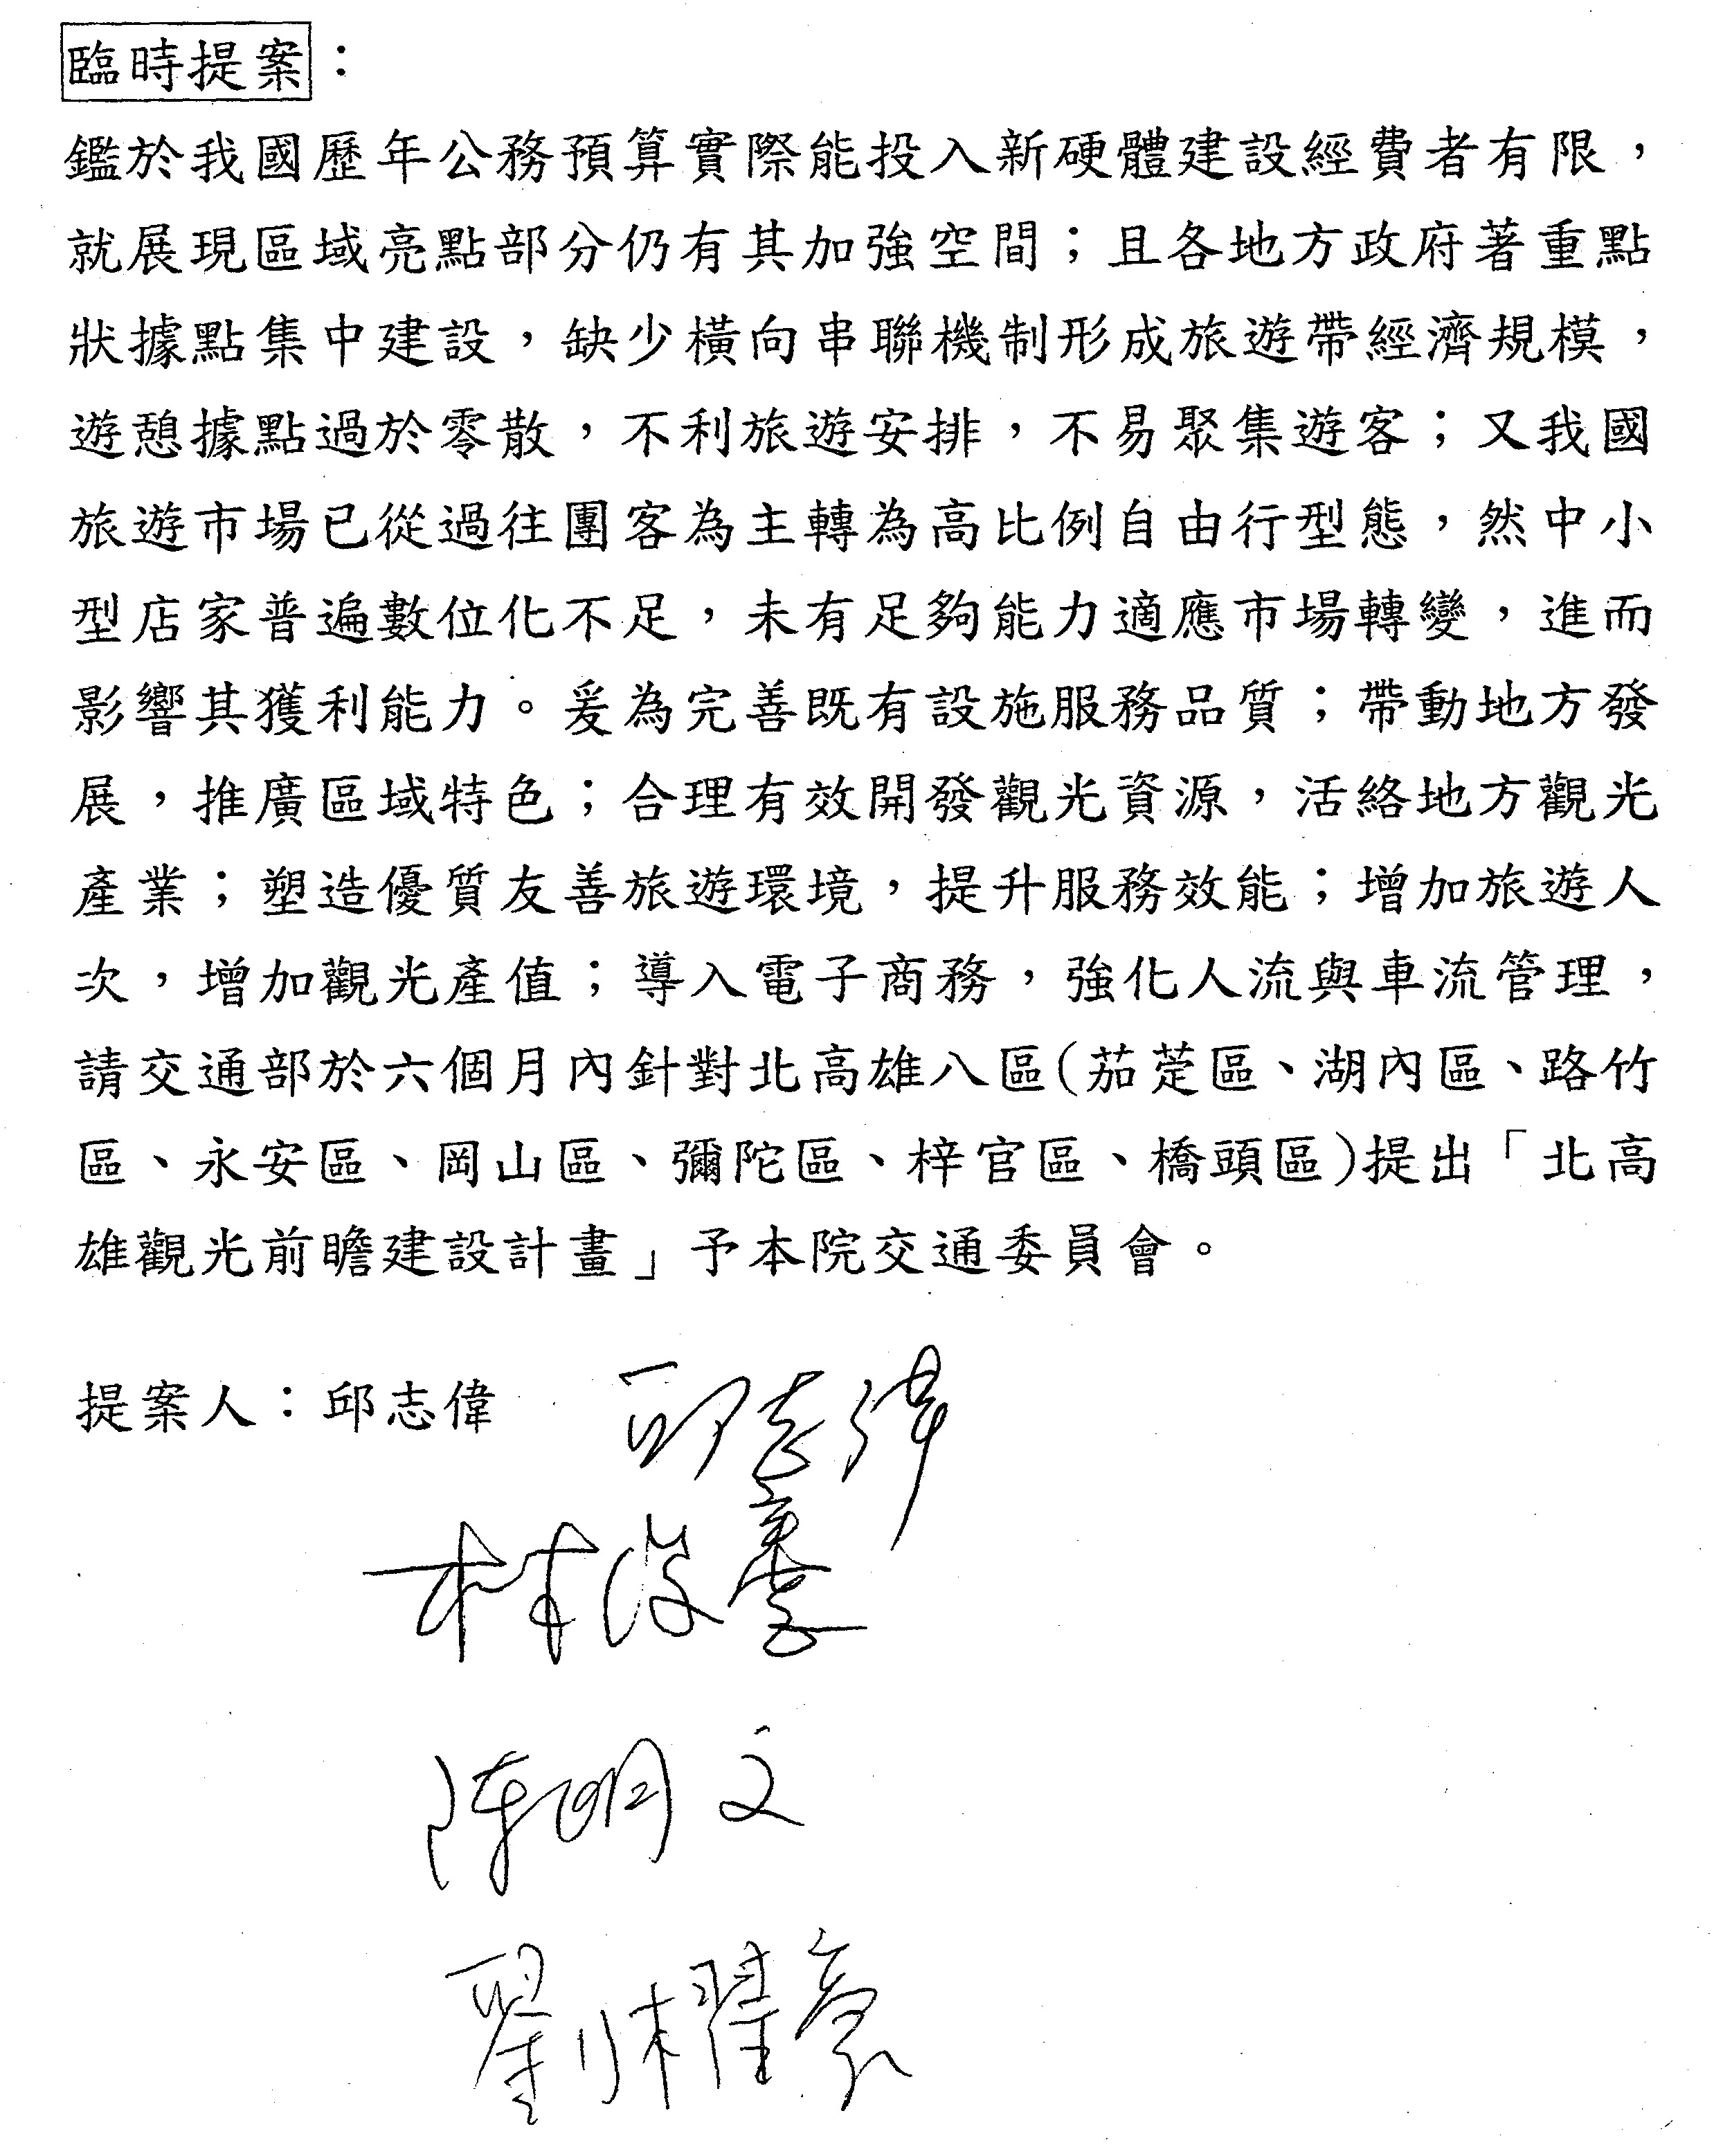 臨時提案：
鑑於我國歷年公務預算實際能投入新硬體建設經費者有限，
就展現區域亮點部分仍有其加強空間；且各地方政府著重點
狀據點集中建設，缺少橫向串聯機制形成旅遊帶經濟規模，
遊憩據點過於零散，不利旅遊安排，不易聚集遊客；又我國
旅遊市場已從過往團客為主轉為高比例自由行型態，然中小
型店家普遍數位化不足，未有足夠能力適應市場轉變，進而
影響其獲利能力。爰為完善既有設施服務品質；帶動地方發
展，推廣區域特色；合理有效開發觀光資源，活絡地方觀光
產業；塑造優質友善旅遊環境，提升服務效能；增加旅遊人
次，增加觀光產值；導入電子商務，強化人流與車流管理，
請交通部於六個月內針對北高雄八區(茄萣區、湖內區、路竹
區、永安區、岡山區、彌陀區、梓官區、橋頭區)提出「北高
雄觀光前瞻建設計畫」予本院交通委員會。
提案人：邱志偉 邱志偉
林俊憲
陳明文
劉櫂豪